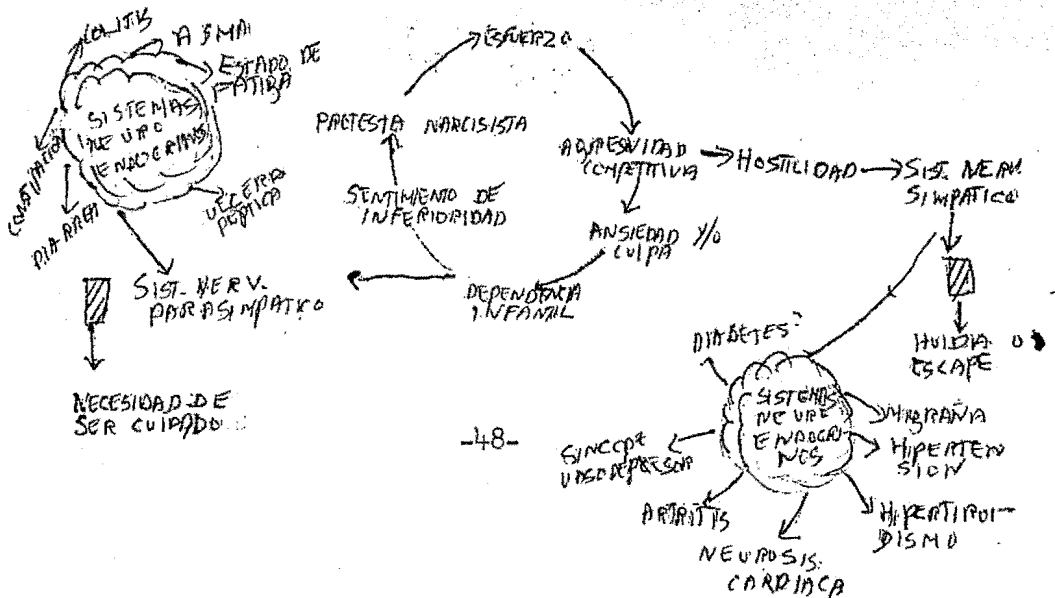 COLITIS
ASMA
ESTADO DE
FATIGA
SISTEMAS
NEURO
ENDOCRINOS
CONSTIPACIÓN
DIARREA
ULCERA
PEPTICA
SIST. NERV.
PARASIMPATICO
NECESIDAD DE
SER CUIDADO
ESFUERZO
PROTESTA NARCISISTA
SENTIMIENTO DE
INFERIORIDAD
AGRESIVIDAD
COMPETITIVA
ANSIEDAD Y/O
CULPA
DEPENDENCIA
INFANTIL
HOSTILIDAD
SIST. NERV.
SIMPATICO
HUIDA O
ESCAPE
DIABETES?
SISTEMAS
NEURO
ENDOCRI
NOS
MIGRAÑA
HIPERTEN
SION
HIPERTIROI-
DISMO
NEUROSIS
CARDIACA
ARTRITIS
SINCOPE
VASODEPRESOR
-48-